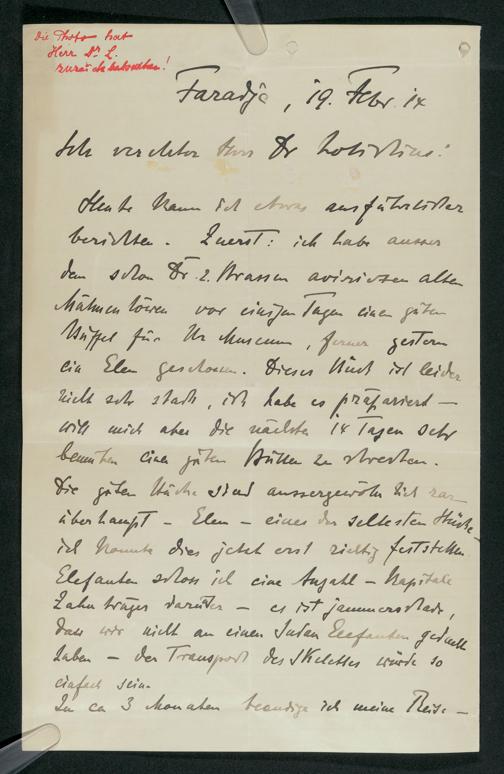 die Photo hat
Herr Dr. L.
zurückbehalten!
Faradje, 19. Febr. 14
Sehr verehrter Herr Dr
Heute kann ich etwas ausführlicher
berichten. Zuerst: ich habe ausser
dem schon Dr. z. Strassen avisierten alten
Mähnenlöwen vor einigen Tagen einen guten
Büffel für Ihr Museum, ferner gestern
ein Elen geschossen. Dieses Stück ist leider
nicht sehr stark, ich habe es präpariert –
will mich aber die nächsten 14 Tagen sehr
bemühen einen guten Bullen zu strecken.
Die guten Stücke sind aussergewöhnlich rar
überhaupt – Elen – eines der seltesten Stücke
ich konnte dies jetzt erst richtig feststellen.
Elefanten schoss ich eine Anzahl – Kapitale
Zahnträger darunter – es ist jammerschade,
dass wir nicht an einen Sudan Elefanten gedacht
haben – der Transport des Skelettes würde so
einfach sein.
In ca 3 Monaten beendige ich meine Reise –